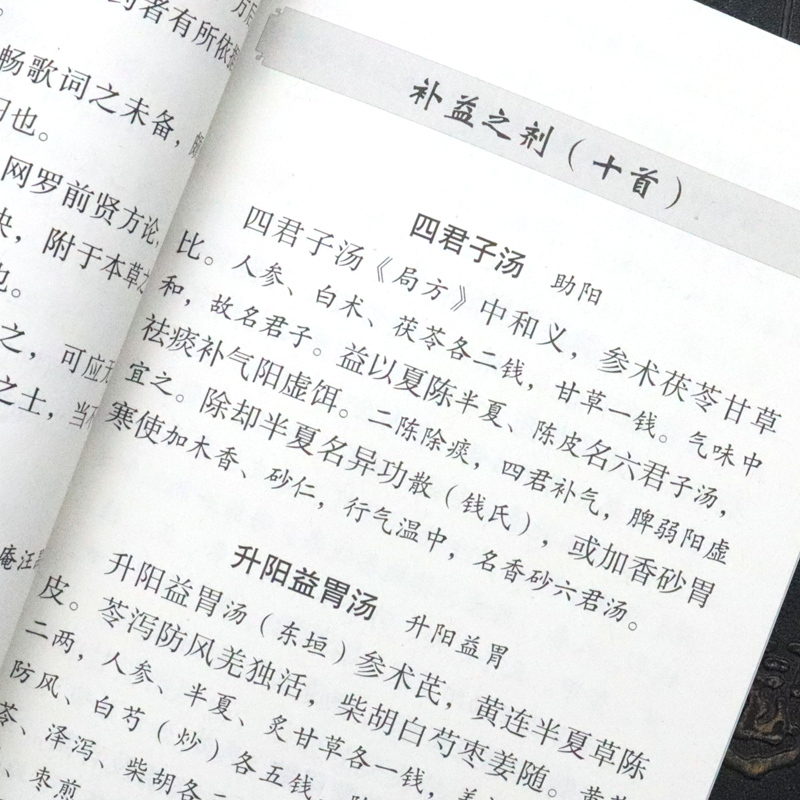 者有所依
畅歌词之未备，
也。
网罗前贤方论，
，附于本草
也。
之，可应
之士，当
庵汪
补益之剂（十首）
四君子汤 助阳
四君子汤《局方》中和义，参术茯苓甘草
比。人参、白术、茯苓各二钱，甘草一钱。气味中
和，故名君子。益以夏陈半夏、陈皮名六君子汤，
祛痰补气阳虚饵。二陈除痰，四君补气，脾弱阳虚
宜之。除却半夏名异功散（钱氏），或加香砂胃
寒使加木香、砂仁，行气温中，名香砂六君汤。
升阳益胃汤 升阳益胃
升阳益胃汤（东垣）参术芪，黄连半夏草陈
皮。苓泻防风羌独活，柴胡白芍枣姜随。黄芪
二两，人参、半夏、炙甘草各一钱，羌
防风、白芍（炒）各五钱，
苓、泽泻、柴胡各二
、枣煎